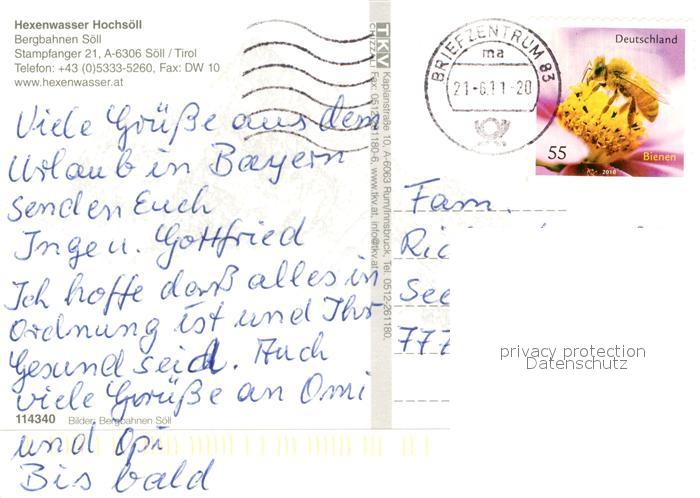 Hexenwasser Hochsöll
Bergbahnen Söll
Stampfanger 21, A-6306 Söll / Tirol
Telefon: +43 (0)5333-5260, Fax: DW 10
www.hexenwasser.at
Viele Grüße aus dem
Urlaub in Bayern
senden Euch
Inge u. Gottfried
Ich hoffe daß alles in
Ordnung ist und Ihr
Gesund seid. Auch
viele Grüße an Omi
und Opi
Bis bald
114340 Bilder: Bergbahnen Söll
TKV
Kaplanstraße 10, A-6063 Rum/Innsbruck, Tel. 0512-261180,
Fax: 0512-261180-6, www.tkv.at, info@tkv.at
BRIEFZENTRUM 83
ma
21-6.11-20
Deutschland
55
Bienen
2010
Fam.
Ric
See
777
privacy protection
Datenschutz